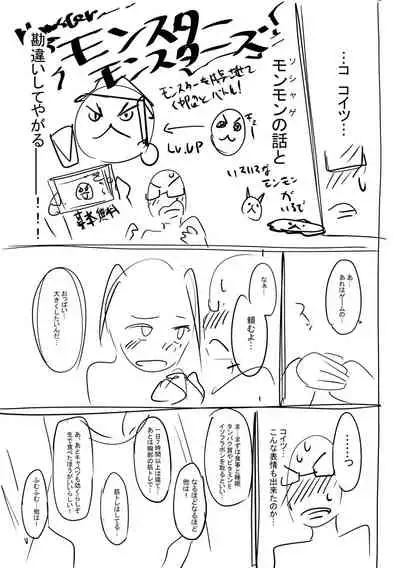 …コ
コイツ…
モンモンの話と
ソシャゲ
勘違いしてやがる
――――！！！
モンスター
モンスターズ
モンスターを育てて
バトル！
LV.UP
いろいろな
モンモンが
いるで
基本無料
あ…
あれはゲームの…
なぁ…
頼むよ…
おっぱい…
大きくしたいんだ…
………っ
コイツ…
こんな表情も出来たのか…
ま…まずは食事と睡眠
タンパク質やビタミンと
イソフラボンを取るといい…
なるほどなるほど
他は！
一日７時間以上は寝て…
あとは胸部の筋トレで…
筋トレはしてる…
あ、あとキャベツも効くらしぞ
生で食べたほうがいいらしい！
ふむふむ　他は！